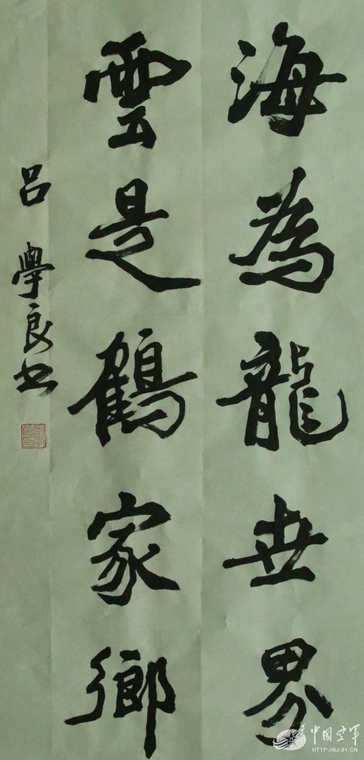 海為龍世界
雲是鶴家鄉
呂學良书
中国空军
HTTP://KJ.81.CN